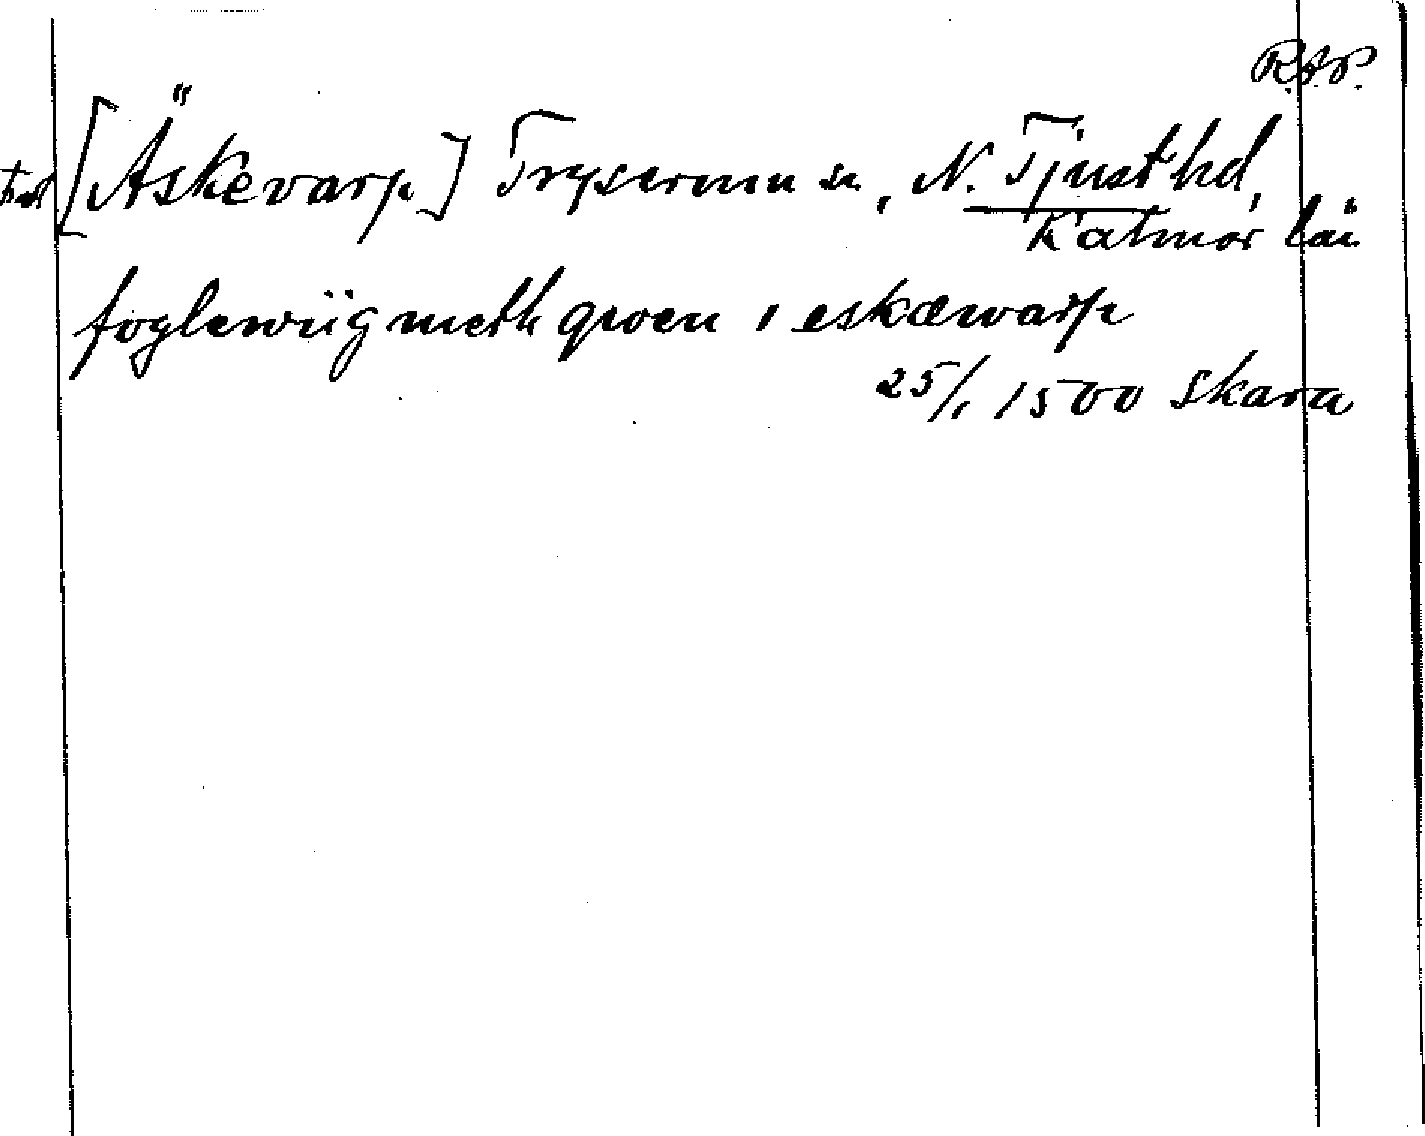 R.A.P.
[Äskevarp] Tryserum sn, N. Tjust hd,
Kalmar län
foglewiig meth qwoen i eskæwarp
25/1 1500 Skara